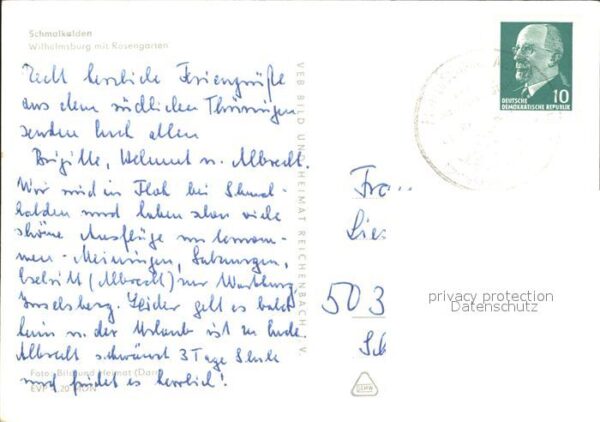 Schmalkalden
Wilhelmsburg mit Rosengarten
Recht herzliche Feriengrüße
aus dem südlichen Thüringen
senden Euch allen
Brigitte, Helmut u. Albrecht.
Wir sind in Floh bei Schmal-
kalden und haben schon viele
schöne Ausflüge unternom-
men - Meiningen, Salzungen,
Eselritt (Albrecht) zur Wartburg,
Inselsberg. Leider geht es bald
heim u. der Urlaub ist zu Ende.
Albrecht schwänzt 3 Tage Schule
und findet es herrlich!
Foto: Bild und Heimat
EVP
VEB BILD UND HEIMAT REICHENBACH I. V.
DEUTSCHE
DEMOKRATISCHE REPUBLIK
10
Fra
503
privacy protection
Datenschutz